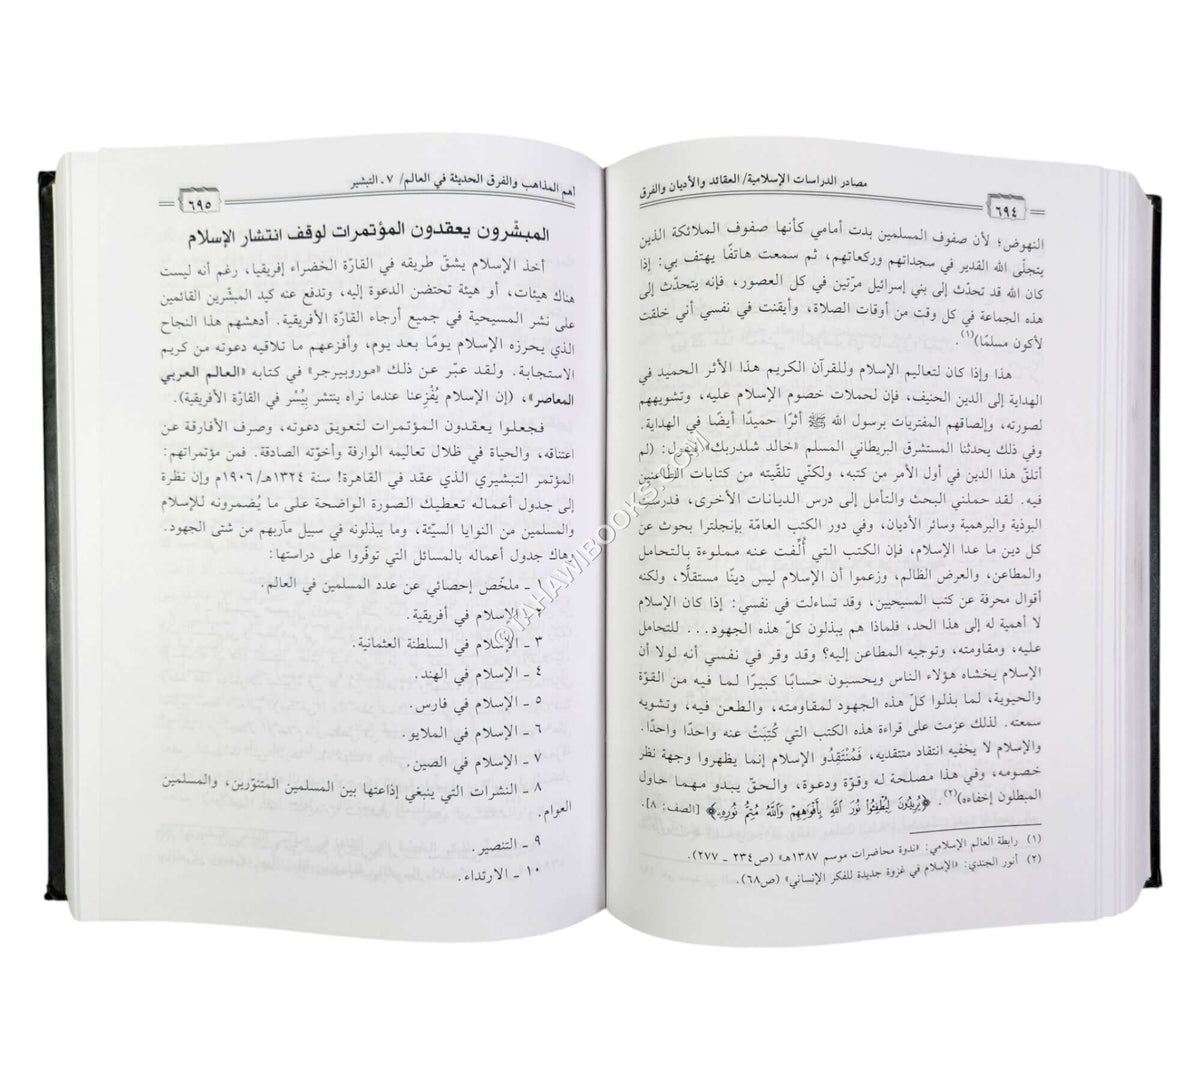 مصادر الدراسات الإسلامية/ العقائد والأديان والفرق
٦٩٤
النهوض؛ لأن صفوف المسلمين بدت أمامي كأنها صفوف الملائكة الذين
يتجلّى الله القدير في سجداتهم وركعاتهم، ثم سمعت هاتفًا يهتف بي: إذا
كان الله قد تحدّث إلى بني إسرائيل مرّتين في كل العصور، فإنه يتحدّث إلى
هذه الجماعة في كل وقت من أوقات الصلاة، وأيقنت في نفسي أني خلقت
لأكون مسلمًا)(١).
هذا وإذا كان لتعاليم الإسلام وللقرآن الكريم هذا الأثر الحميد في
الهداية إلى الدين الحنيف، فإن لحملات خصوم الإسلام عليه، وتشويههم
لصورته، وإلصاقهم المفتريات برسول الله ﷺ أثرًا حميدًا أيضًا في الهداية.
وفي ذلك يحدثنا المستشرق البريطاني المسلم «خالد شلدريك» فيقول: (لم
أتلقّ هذا الدين في أول الأمر من كتبه، ولكنّي تلقّيته من كتابات الطاعنين
فيه. لقد حملني البحث والتأمل إلى درس الديانات الأخرى، فدرست
البوذية والبرهمية وسائر الأديان، وفي دور الكتب العامّة بإنجلترا بحوث عن
كل دين ما عدا الإسلام، فإن الكتب التي أُلِّفت عنه مملوءة بالتحامل
والمطاعن، والعرض الظالم، وزعموا أن الإسلام ليس دينًا مستقلًّا، ولكنه
أقوال محرفة عن كتب المسيحيين، وقد تساءلت في نفسي: إذا كان الإسلام
لا أهمية له إلى هذا الحد، فلماذا هم يبذلون كلّ هذه الجهود... للتحامل
عليه، ومقاومته، وتوجيه المطاعن إليه؟ وقد وقر في نفسي أنه لولا أن
الإسلام يخشاه هؤلاء الناس ويحسبون حسابًا كبيرًا لما فيه من القوّة
والحيوية، لما بذلوا كلّ هذه الجهود لمقاومته، والطعن فيه، وتشويه
سمعته. لذلك عزمت على قراءة هذه الكتب التي كُتِبَتْ عنه واحدًا واحدًا.
والإسلام لا يخفيه انتقاد منتقديه، فَمُنْتَقِدُو الإسلام إنما يظهروا وجهة نظر
خصومه، وفي هذا مصلحة له وقوّة ودعوة، والحقّ يبدو مهما حاول
المبطلون إخفاءه)(٢). ﴿يُرِيدُونَ لِيُطْفِئُوا نُورَ اللَّهِ بِأَفْوَاهِهِمْ وَاللَّهُ مُتِمُّ نُورِهِ﴾ [الصف: ٨].
(١) رابطة العالم الإسلامي: «ندوة محاضرات موسم ١٣٨٧هـ» (ص٢٣٤ ـ ٢٧٧).
(٢) أنور الجندي: «الإسلام في غزوة جديدة للفكر الإنساني» (ص٦٨).
أهم المذاهب والفرق الحديثة في العالم/ ٧ـ التبشير
٦٩٥
المبشّرون يعقدون المؤتمرات لوقف انتشار الإسلام
أخذ الإسلام يشقّ طريقه في القارّة الخضراء إفريقيا، رغم أنه ليست
هناك هيئات، أو هيئة تحتضن الدعوة إليه، وتدفع عنه كيد المبشّرين القائمين
على نشر المسيحية في جميع أرجاء القارّة الأفريقية. أدهشهم هذا النجاح
الذي يحرزه الإسلام يومًا بعد يوم، وأفزعهم ما تلاقيه دعوته من كريم
الاستجابة. ولقد عبّر عن ذلك «موروبيرجر» في كتابه «العالم العربي
المعاصر»، (إن الإسلام يُفْزِعنا عندما نراه ينتشر بِيُسْر في القارّة الأفريقية).
فجعلوا يعقدون المؤتمرات لتعويق دعوته، وصرف الأفارقة عن
اعتناقه، والحياة في ظلال تعاليمه الوارفة وأخوّته الصادقة. فمن مؤتمراتهم:
المؤتمر التبشيري الذي عقد في القاهرة! سنة ١٣٢٤هـ/١٩٠٦م وإن نظرة
إلى جدول أعماله تعطيك الصورة الواضحة على ما يُضمرونه للإسلام
والمسلمين من النوايا السيّئة، وما يبذلونه في سبيل مآربهم من شتى الجهود.
وهاك جدول أعماله بالمسائل التي توفّروا على دراستها:
١ ـ ملخّص إحصائي عن عدد المسلمين في العالم.
٢ ـ الإسلام في أفريقية.
٣ ـ الإسلام في السلطنة العثمانية.
٤ ـ الإسلام في الهند.
٥ ـ الإسلام في فارس.
٦ ـ الإسلام في الملايو.
٧ ـ الإسلام في الصين.
٨ ـ النشرات التي ينبغي إذاعتها بين المسلمين المتنوّرين، والمسلمين
العوام.
٩ ـ التنصير.
١٠ ـ الارتداء.
© TAHAWIBOOKS.COM